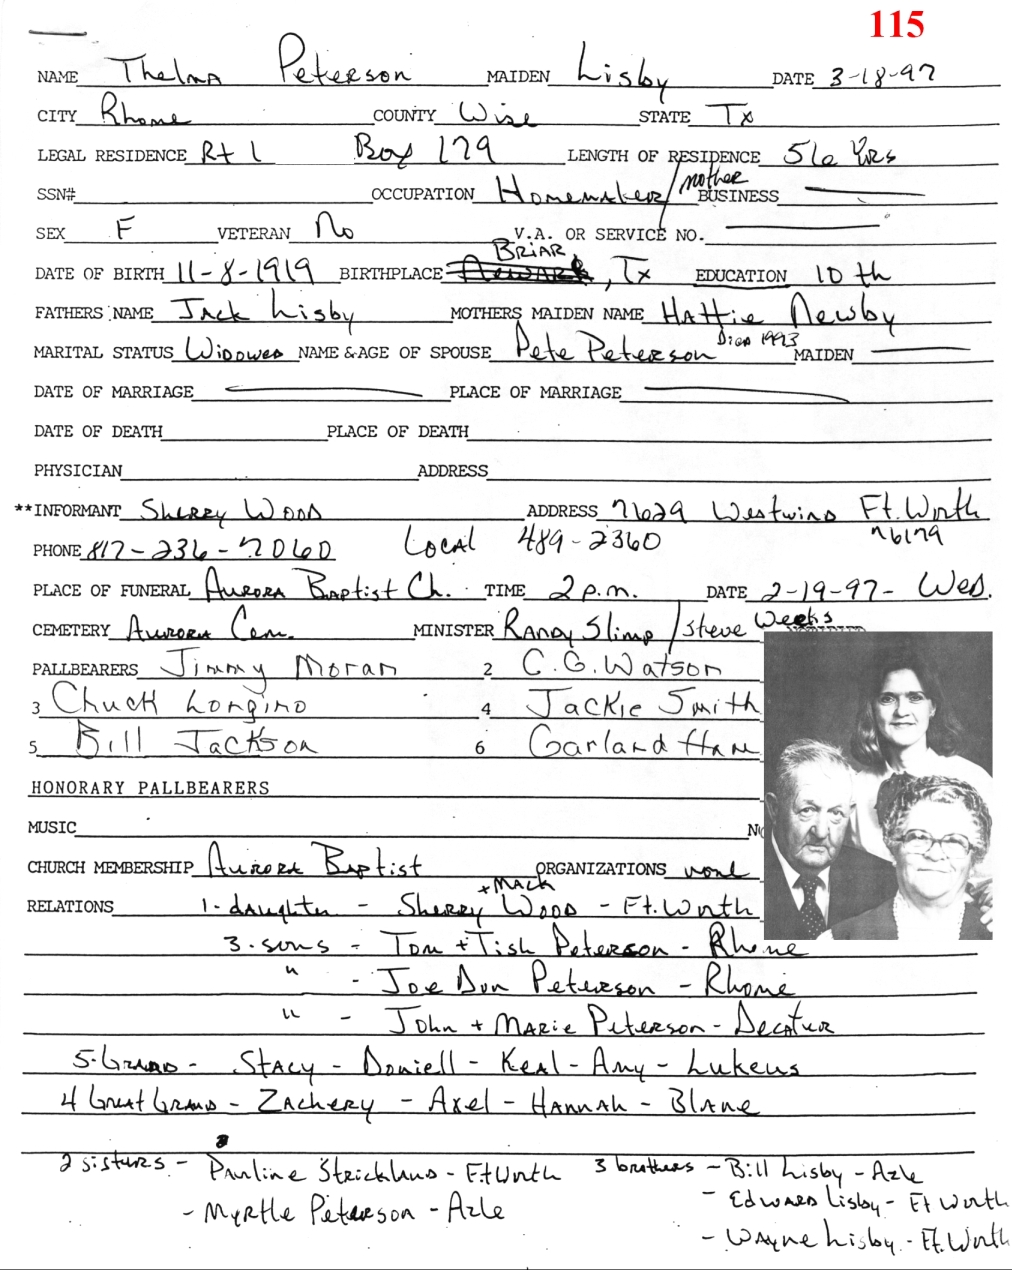 115
NAME Thelma Peterson MAIDEN Lisby DATE 3-18-97
CITY Rhome COUNTY Wise STATE Tx
LEGAL RESIDENCE Rt 1 Box 179 LENGTH OF RESIDENCE 56 Yrs
SSN# OCCUPATION Homemaker/mother BUSINESS
SEX F VETERAN No V.A. OR SERVICE NO.
BRIAR
DATE OF BIRTH 11-8-1919 BIRTHPLACE Newark, Tx EDUCATION 10th
FATHERS NAME Jack Lisby MOTHERS MAIDEN NAME Hattie Newby
MARITAL STATUS Widowed NAME & AGE OF SPOUSE Pete Peterson Died 1993 MAIDEN
DATE OF MARRIAGE PLACE OF MARRIAGE
DATE OF DEATH PLACE OF DEATH
PHYSICIAN ADDRESS
**INFORMANT Sherry Wood ADDRESS 7629 Westwind Ft. Worth
76179
PHONE 817-236-7060 Local 489-2360
PLACE OF FUNERAL Aurora Baptist Ch. TIME 2 p.m. DATE 2-19-97- Wed.
CEMETERY Aurora Cem. MINISTER Randy Slimp/Steve Weeks
PALLBEARERS Jimmy Moran 2 C.G. Watson
3 Chuck Longino 4 Jackie Smith
5 Bill Jackson 6 Garland Ham
HONORARY PALLBEARERS
MUSIC
CHURCH MEMBERSHIP Aurora Baptist ORGANIZATIONS none
RELATIONS 1-daughter - Sherry + Mack Wood - Ft. Worth
3-sons - Tom + Tish Peterson - Rhome
" - Joe Don Peterson - Rhome
" - John + Marie Peterson - Decatur
5-Grand - Stacy - Daniell - Keal - Amy - Lukeus
4 Great Grand - Zachery - Axel - Hannah - Blane
2 sisters - Pauline Strickland - Ft Worth 3 brothers - Bill Lisby - Azle
- Myrtle Peterson - Azle - Edward Lisby - Ft Worth
- Wayne Lisby - Ft. Worth